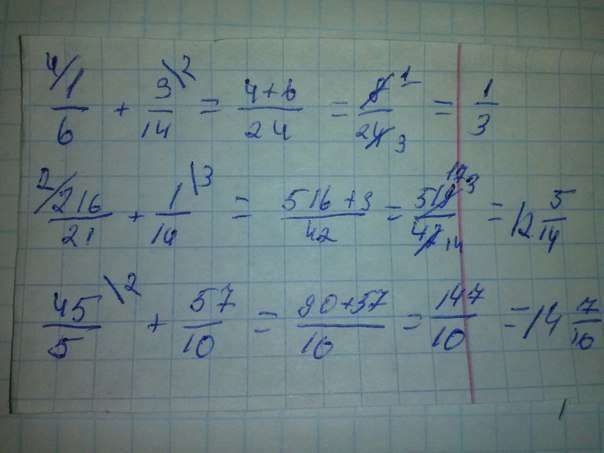 4/ 1/6 + 3/14 \2 = 4+6/24 = 8 1/24 3 = 1/3
2/ 216/21 + 1/14 \3 = 516+3/42 = 519 173/42 14 = 12 5/14
45/5 \2 + 57/10 = 90+57/10 = 147/10 = 14 7/10